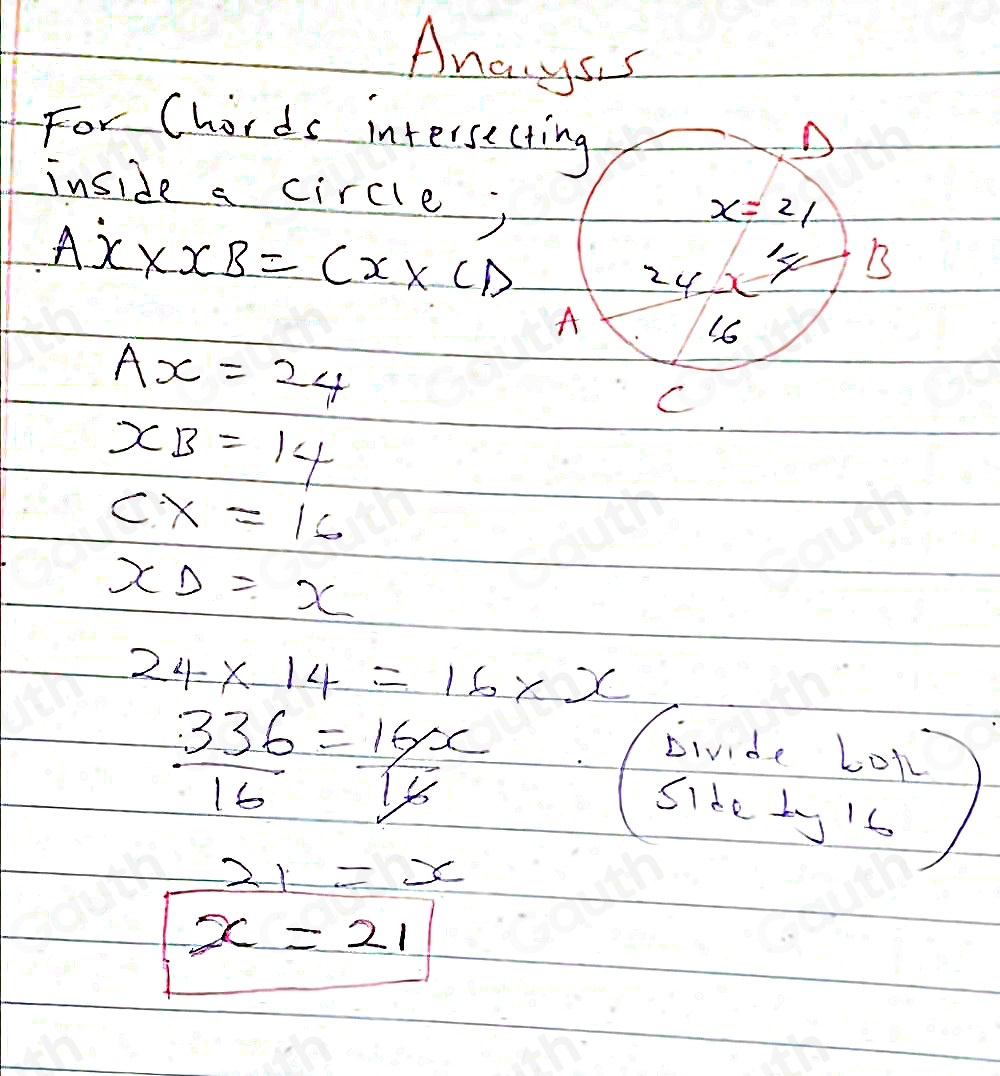 Analysis
For Chords intersecting
inside a circle ;
AX × XB = CX × CD
AX = 24
XB = 14
CX = 16
XD = x
24 × 14 = 16 × x
336 = 16x
16 16
(Divide both
side by 16)
21 = x
x = 21
D
x = 21
14 B
24 x
A 16
C
Gauth